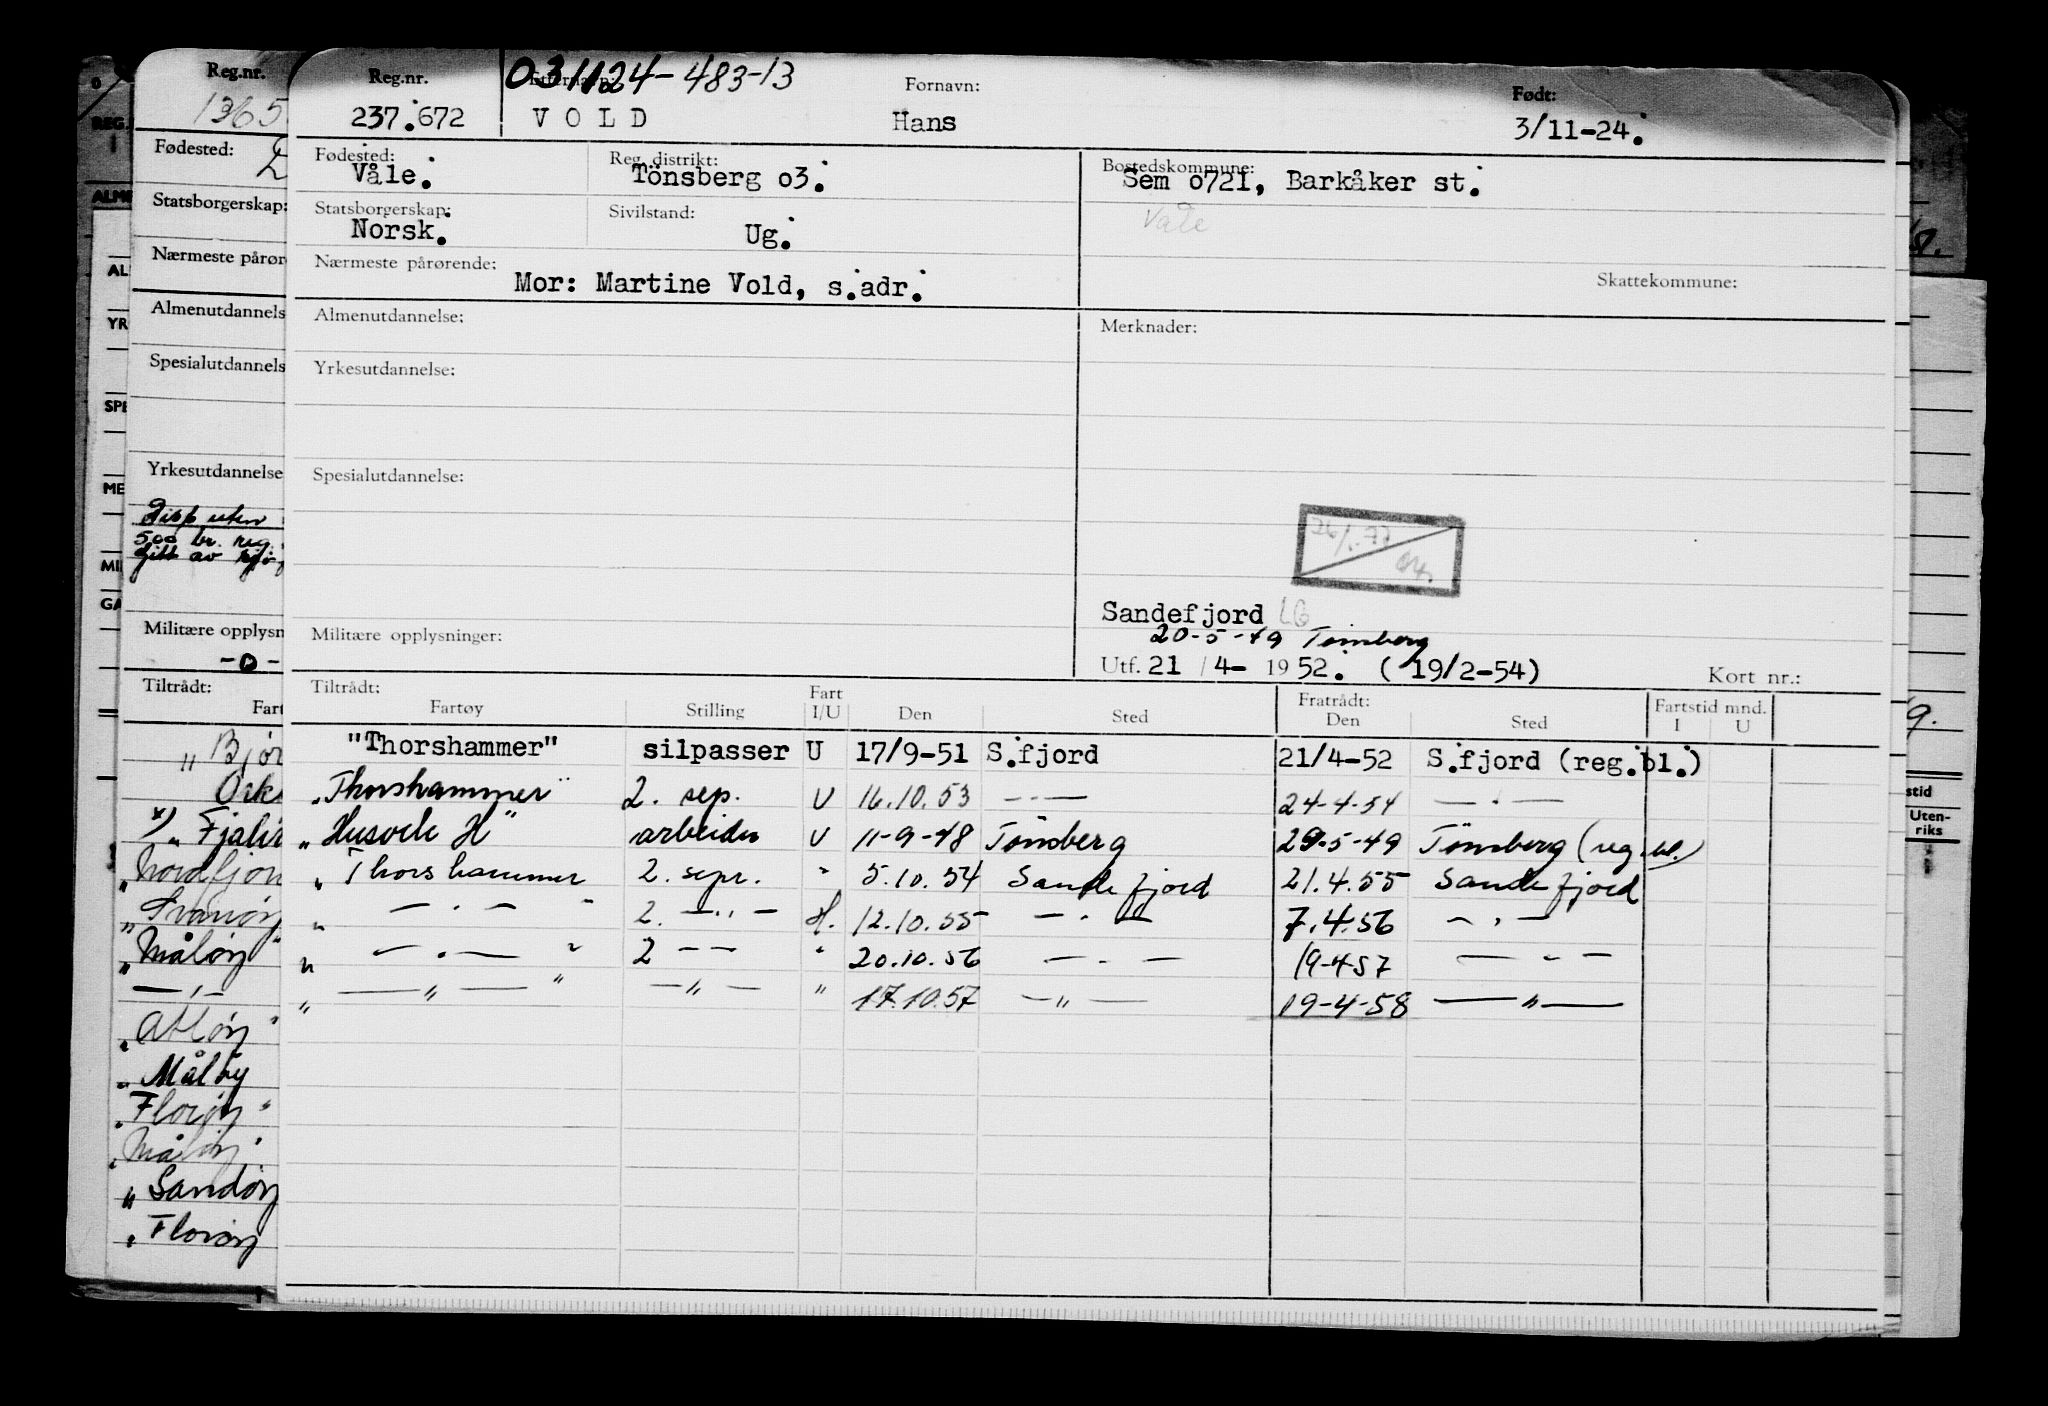 Reg.nr. Etternavn: 031124-483-13 Fornavn: Født:
237.672 VOLD Hans 3/11-24.
Fødested: Reg. distrikt: Bostedskommune:
Våle. Tönsberg o3. Sem o721, Barkåker st.
Statsborgerskap: Sivilstand: Våle
Norsk. Ug.
Nærmeste pårørende: Skattekommune:
Mor: Martine Vold, s.adr.
Almenutdannelse: Merknader:
Yrkesutdannelse:
Spesialutdannelse:
Sandefjord LG
Militære opplysninger: 20-5-49 Tønsberg
Utf. 21 / 4- 1952. ( 19/2-54) Kort nr.:
Tiltrådt: Fart Fratrådt: Fartstid mnd.
Fartøy Stilling I/U Den Sted Den Sted I U
"Thorshammer" silpasser U 17/9-51 S.fjord 21/4-52 S.fjord (reg.bl.)
"Thorshammer" 2. sep. U 16.10.53 — " — 24-4-54 — " —
"Husvik H" arbeider U 11-9-48 Tønsberg 29-5-49 Tønsberg (reg.bl.)
" Thorshammer 2. sepr. " 5.10.54 Sandefjord 21.4.55 Sandefjord
" — " — " 2. — " — H. 12.10.55 — " — 7.4.56 — " —
" — " — " 2 — — " 20.10.56 — " — 19-4-57 — " —
" — " — " — " — " 17.10.57 — " — 19-4-58 — " —
Reg.nr.
1365
Fødested:
Statsborgerskap:
Nærmeste pårør
Almenutdannels
Spesialutdannels
Yrkesutdannelse
Disp uten
500 br. reg.
gitt av
Militære opplysn
-0-
Tiltrådt:
Fart
" Bjør
*) " Fjali
" Nordfjor
" Svanøy
" Måløy "
— " —
" Atløy "
" Måløy
" Florøy "
" Måløy "
" Sandøy
" Florøy
REG.
ALME
AL
YR
SPE
ME
MI
GA
9.
stid
Uten-
riks